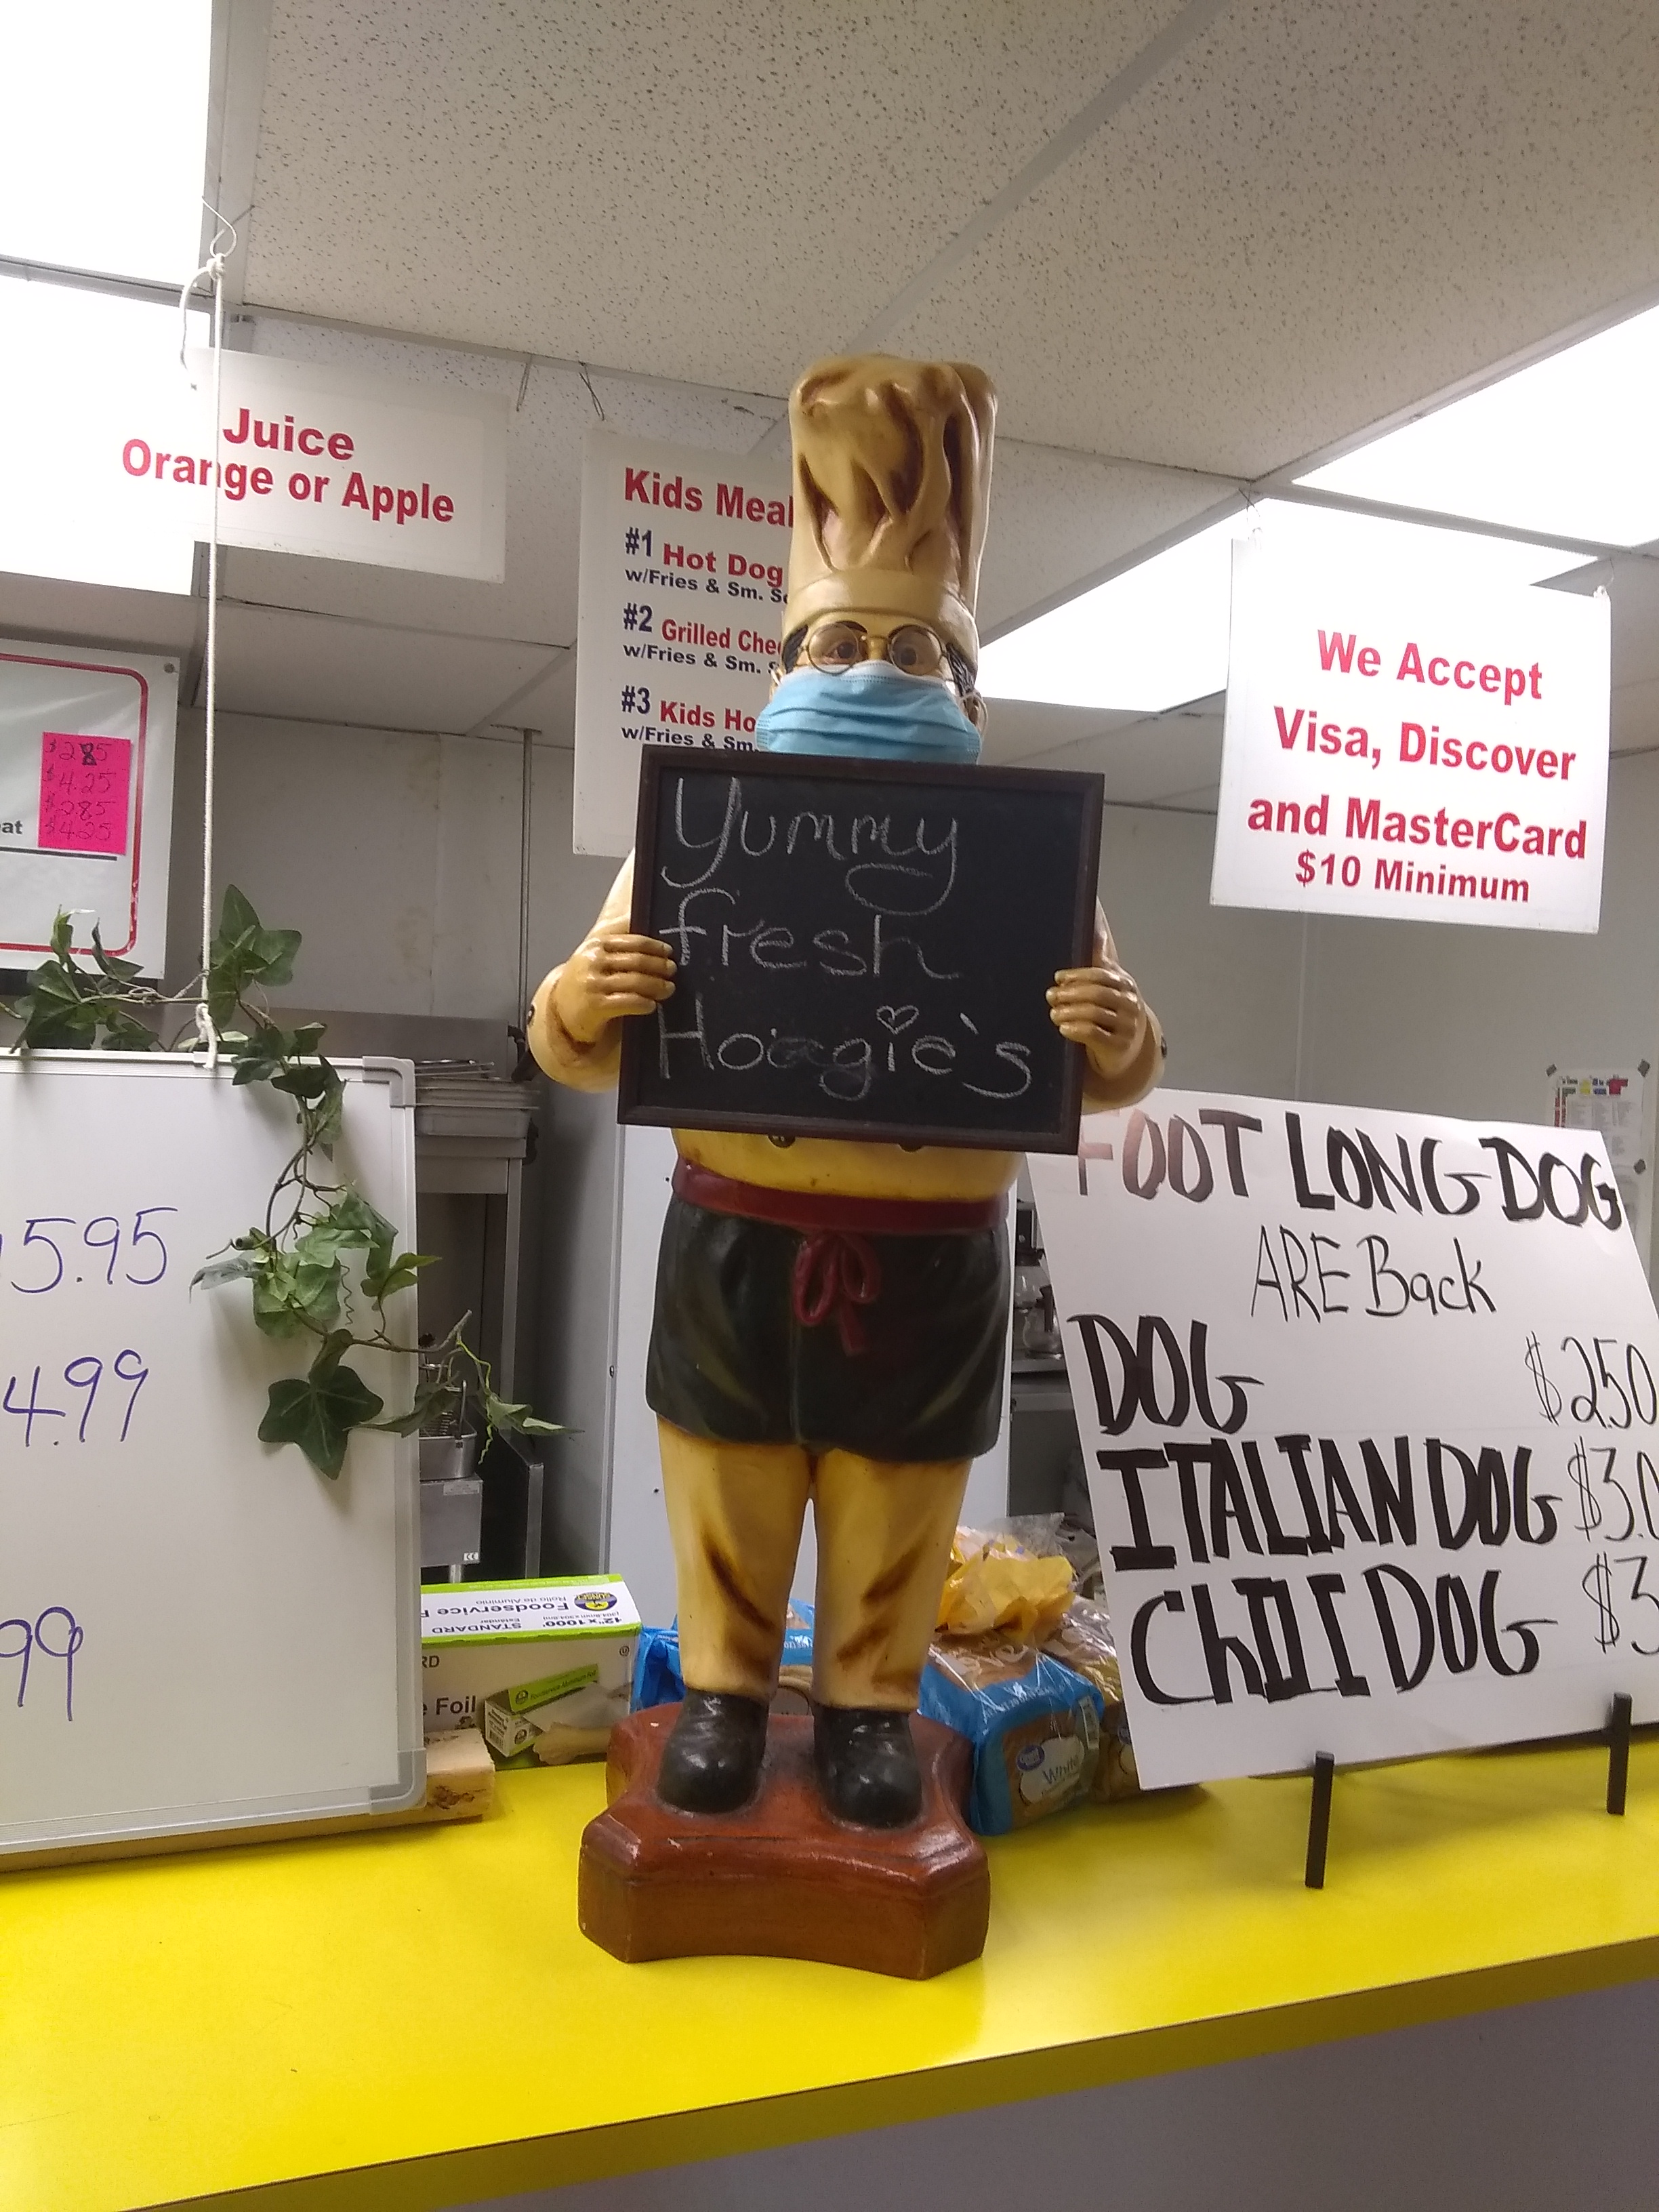 Juice
Orange or Apple
Kids Meal
#1 Hot Dog
w/Fries & Sm.
#2 Grilled
w/Fries & Sm.
#3 Kids
w/Fries & Sm.
We Accept
Visa, Discover
and MasterCard
$10 Minimum
$285
$4.25
$285
$425
Yummy
fresh
Hoagie's
5.95
4.99
99
FOOT LONG DOG
ARE Back
DOG $250
ITALIAN DOG $3.0
CHILI DOG $3
Foodservice
Rollo de Aluminio
STANDARD
Estándar
12"x1000'
Foil
Great Value
White